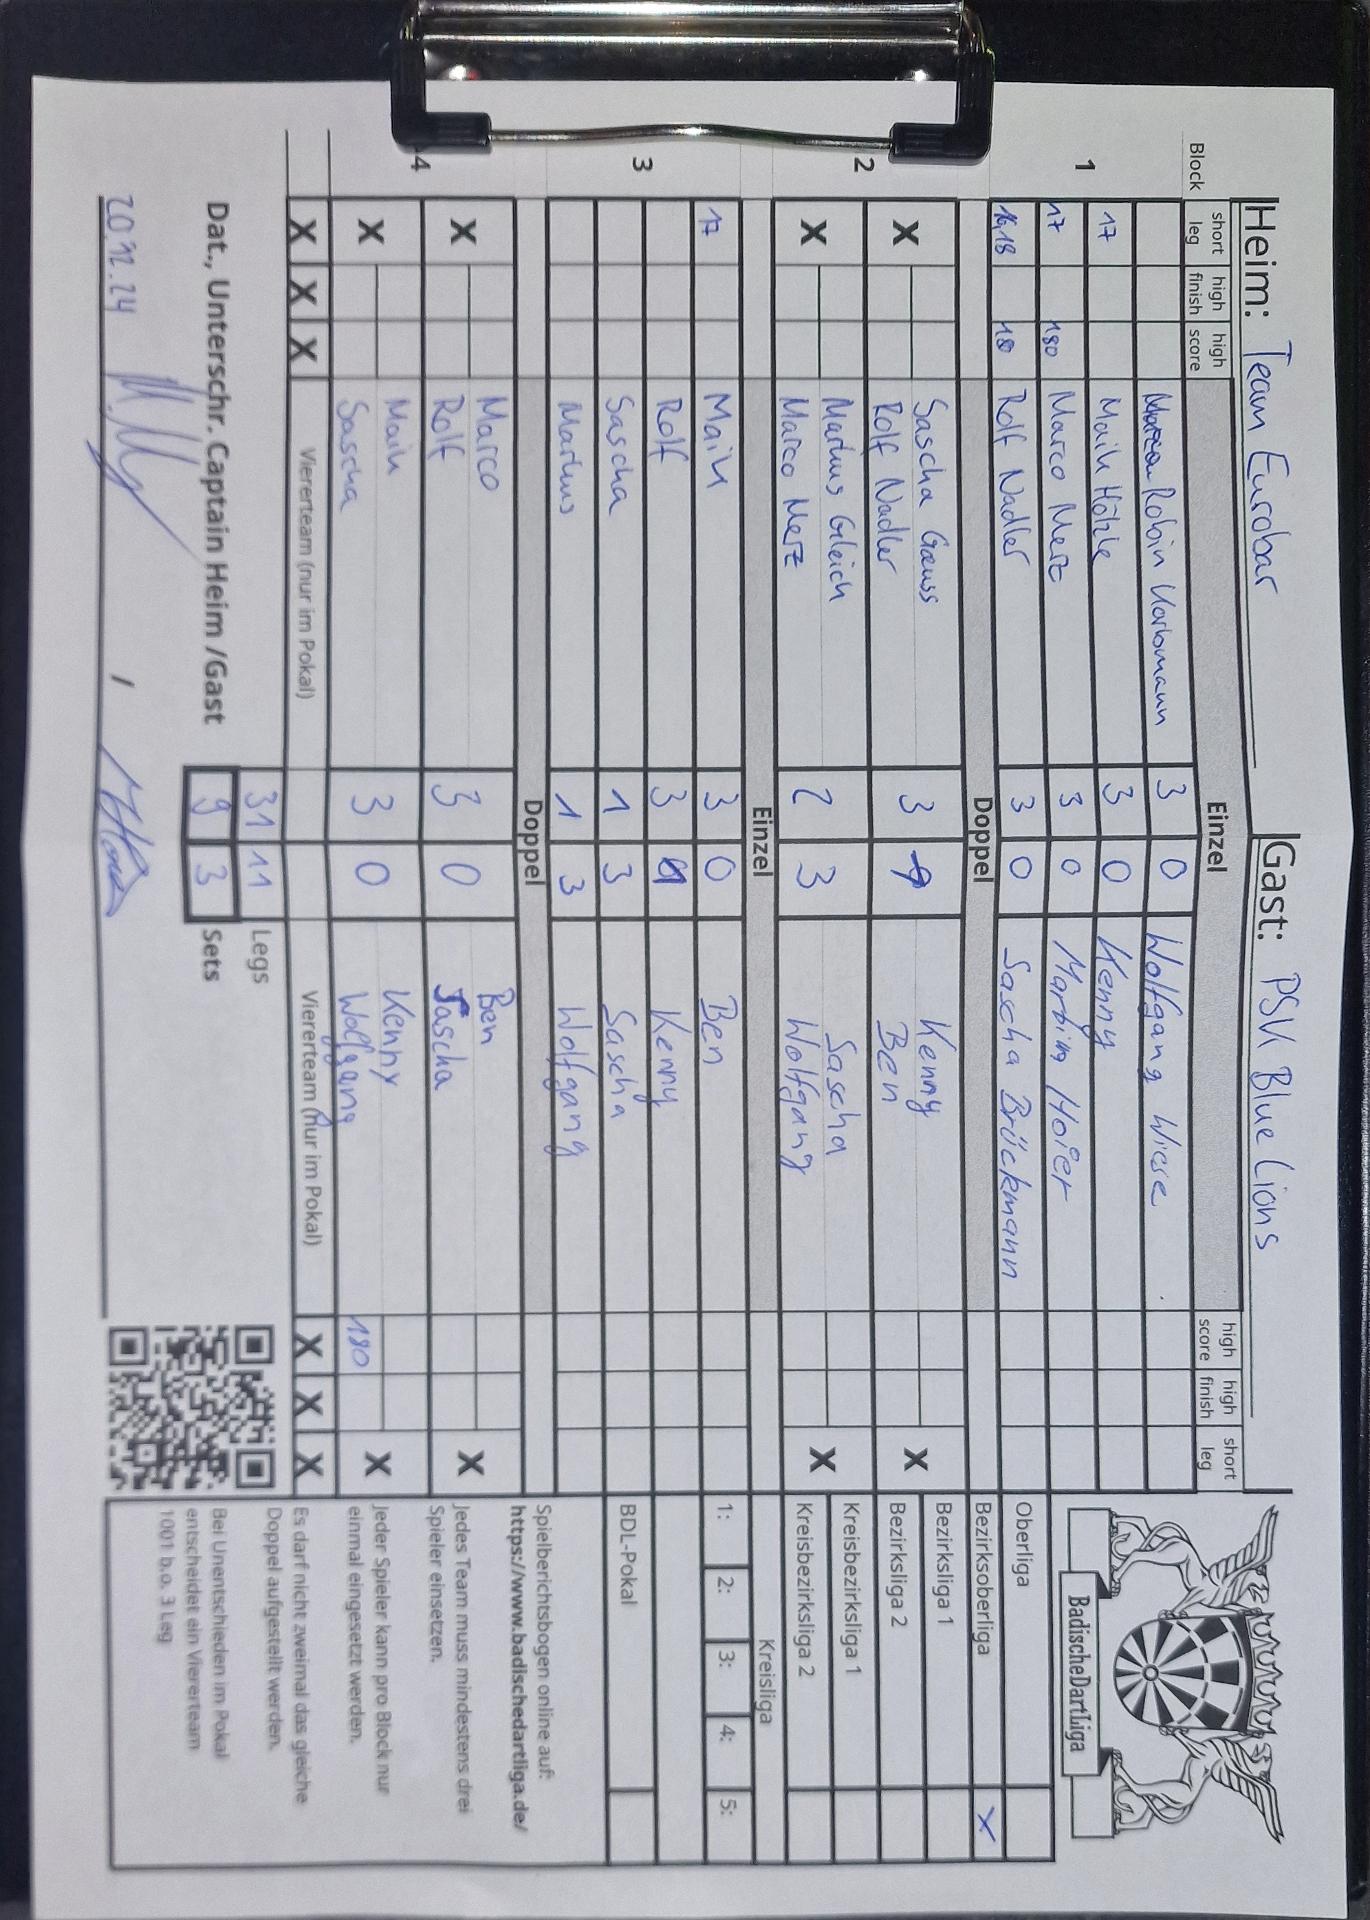 Heim: Team Eurobar Gast: PSK Blue Lions
Block short leg high finish high score Einzel high score high finish short leg
1
Robin Korbmann 3 0 Wolfgang Wiese
17 Maik Hölzle 3 0 Kenny
17 180 Marco Merz 3 0 Martin Hoier
16,18 180 Rolf Nadler 3 0 Sascha Brückmann
Doppel
2
X Sascha Gauss 3 Kenny X
Rolf Nadler Ben
X Markus Gleich 2 3 Sascha X
Marco Merz Wolfgang
Einzel
3
17 Maik 3 0 Ben
Rolf 3 1 Kenny
Sascha 1 3 Sascha
Markus 1 3 Wolfgang
Doppel
4
X Marco 3 0 Ben X
Rolf Sascha
X Maik 3 0 Kenny X
Sascha Wolfgang 180
X X X Viererteam (nur im Pokal) Viererteam (nur im Pokal) X X X
31 11 Legs
Dat., Unterschr. Captain Heim /Gast 9 3 Sets
20.12.24
BadischeDartLiga
Oberliga
Bezirksoberliga X
Bezirksliga 1
Bezirksliga 2
Kreisbezirksliga 1
Kreisbezirksliga 2
Kreisliga
1: 2: 3: 4: 5:
BDL-Pokal
Spielberichtsbogen online auf:
https://www.badischedartliga.de/
Jedes Team muss mindestens drei
Spieler einsetzen.
Jeder Spieler kann pro Block nur
einmal eingesetzt werden.
Es darf nicht zweimal das gleiche
Doppel aufgestellt werden.
Bei Unentschieden im Pokal
entscheidet ein Viererteam
1001 b.o. 3 Leg